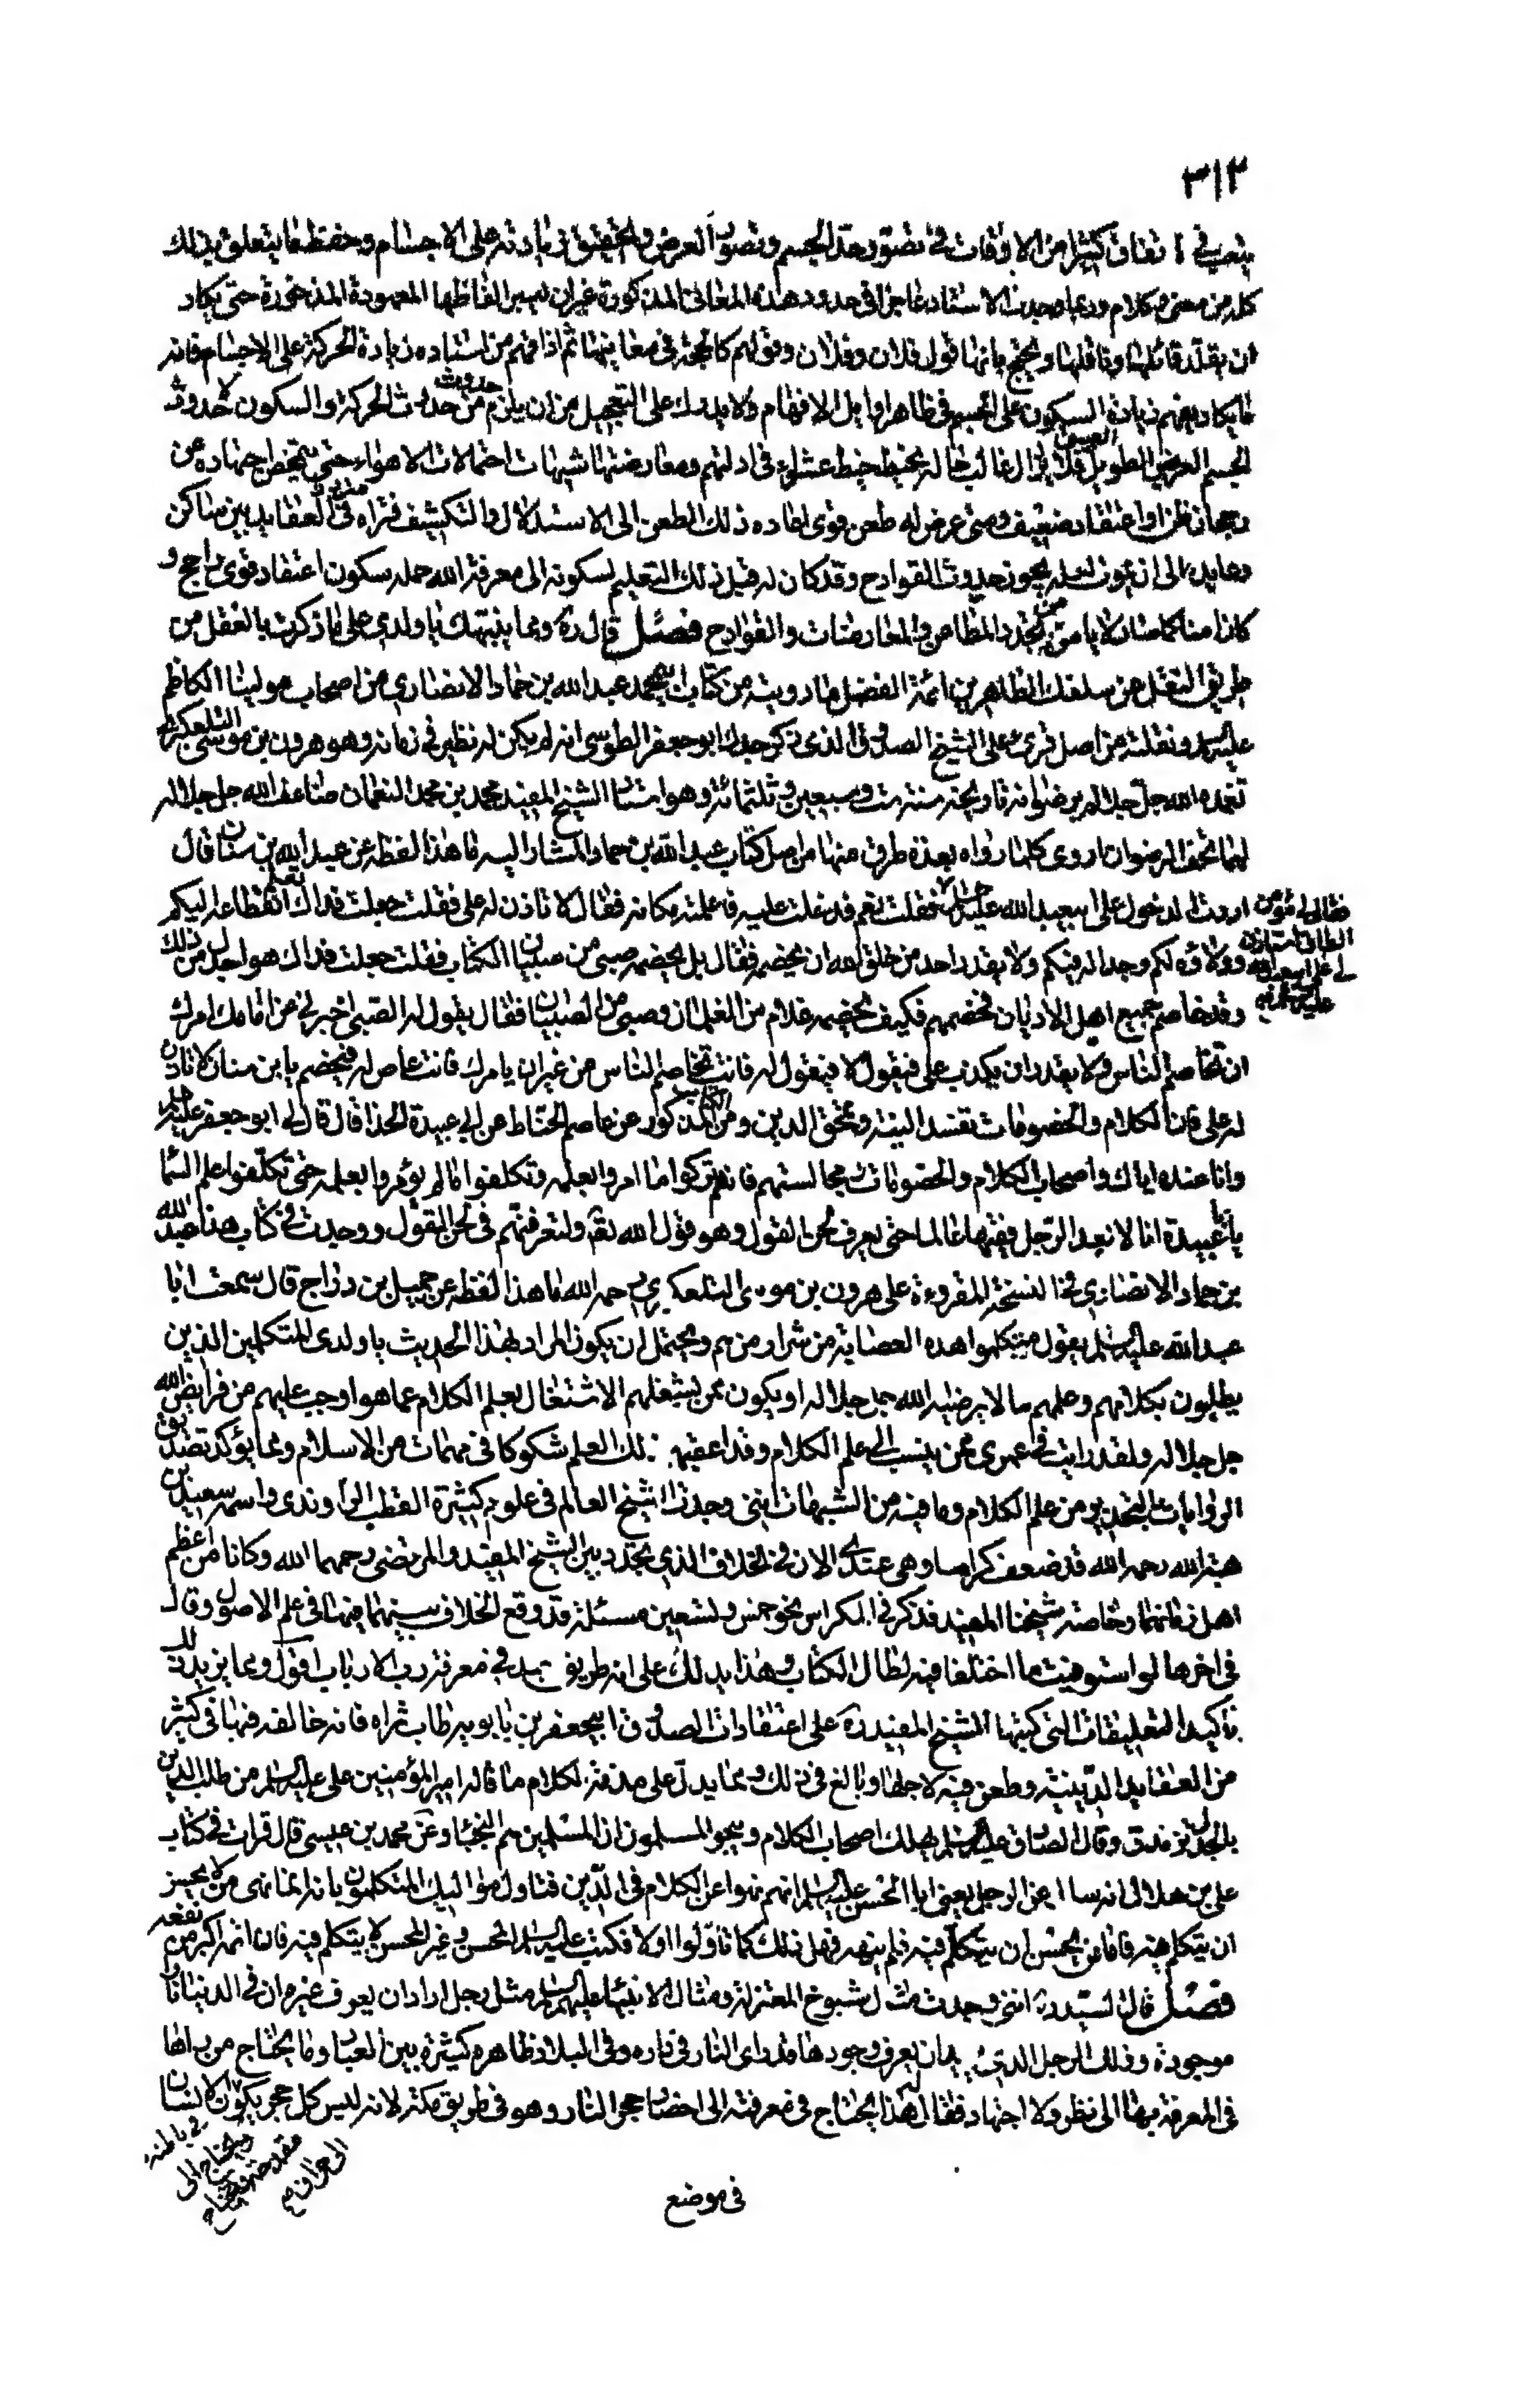 ٣١٣
يتعب في انفاق كثير من الاوقات في تصور حد الجسم وتصور العرض والتحقيق زيادته على الاجسام وحفظ ما يتعلق بذلك
كله من معنى وكلام وربما وجدت الاستاد عاجزا في حدود هذه المعاني المذكورة غير ان يسير الفاظها المعهودة المذخورة حتى يكاد
ان يقلد قائلها وناقلها ويحتج بانها قول فلان وفلان وقولهم كالحجة في معانيها ثم اذا فهم من استاده زيادة الحركة على الاجسام فانه
ما يكاد يفهم زيادة السكون على الجسم في ظاهر اوايل الافهام ولا يدرك على التعجيل من ان يلزم من حدوث الحركة والسكون حدوث
الجسم العريض الطويل العميق فلا يزال غالب حاله يخبط خبط عشواء في ادلتهم ومعارضتها شبهات احتمالات الاهواء حتى يتمخض اجتهاده عن
رجحان ظن او اعتقاد ضعيف ومتى عرض له طعن قوي اعاده ذلك الطعن الى الاستدلال والتكشيف فتراه في العقايد بين ساكن
وعايد الى ان يموت لعله يجوز حدوث القوادح وقد كان له قبل ذلك التعليم لسكونه الى معرفة الله جملة سكون اعتقاد قوي راجح و
كان امنا فصار لا يامن من تجدد المطاعن والمعارضات والقوادح فصل قال ره ومما ينبهك يا ولدي على ما ذكرت بالعقل من
طريق النقل عن سلفك الطاهرين ائمة الفضل ما رويته من كتاب ابي محمد عبد الله بن حماد الانصاري من اصحاب مولينا الكاظم
عليه السلم ونقلته من اصل قرئ على الشيخ الصدوق الذي ذكر جدك ابو جعفر الطوسي انه لم يكن له نظير في زمانه وهو هرون بن موسى التلعكبري
تغمده الله جل جلاله برضوانه تاريخه سنة ست وسبعين وثلثمائة وهو استاد الشيخ المفيد محمد بن محمد النعمان ضاعف الله جل جلاله
لهما تحف الرضوان اروي كلما رواه بعدة طرق منها من اصل كتاب عبد الله بن حماد المشار اليه ما هذا لفظه عن عبد الله بن سنان قال
اردت الدخول على ابيعبد الله عليه السلم فقال لي مؤمن الطاق استاذن لي على ابيعبد الله عليه السلم فقلت نعم فدخلت عليه فاعلمته مكانه فقال لا تاذن له علي فقلت جعلت فداك انقطاعه اليكم
وولاؤه لكم وجداله فيكم ولا يقدر احد من خلق الله ان يخصمه فقال بل يخصمه صبي من صبيان الكتاب فقلت جعلت فداك هو اجدل من ذلك
وقد خاصم جميع اهل الاديان فخصمهم فكيف يخصمه غلام من الغلمان وصبي من الصبيان فقال يقول له الصبي اخبرني عن امامك امرك
ان تخاصم الناس ولا يقدر ان يكذب علي فيقول لا فيقول له فانت تخاصم الناس من غير ان يامرك فانت عاص له فيخصمه يا ابن سنان لا تاذن
له علي فان الكلام والخصومات تفسد النية وتمحق الدين ومن الكتاب المذكور عن عاصم الحناط عن ابي عبيدة الحذا قال قال لي ابو جعفر عليه السلم
وانا عنده اياك واصحاب الكلام والخصومات ومجالستهم فانهم تركوا ما امروا بعلمه وتكلفوا ما لم يؤمروا بعلمه حتى تكلفوا علم السما
يا ابا عبيدة انا لا نعد الرجل فقيها عالما حتى يعرف لحن القول وهو قول الله تعالى ولتعرفنهم في لحن القول ووجدت في كتاب هذا عبد الله
بن حماد الانصاري في النسخة المقروءة على هرون بن موسى التلعكبري رحمه الله ما هذا لفظه عن جميل بن دراج قال سمعت ابا
عبد الله عليه السلم يقول متكلموا هذه العصابة من شرار من هم ويحتمل ان يكون المراد بهذا الحديث يا ولدي المتكلمين الذين
يطلبون بكلامهم وعلمهم ما لا يرضيه الله جل جلاله او يكون ممن يشغلهم الاشتغال بعلم الكلام عما هو اوجب عليهم من فرايض الله
جل جلاله ولقد رايت في عمري ممن ينسب الى علم الكلام وقد اعقبهم ذلك العلم شكوكا في مهمات من الاسلام ومما يؤكد تصديق
الروايات بالتحذير من علم الكلام وما فيه من الشبهات انني وجدت الشيخ العالم في علوم كثيرة القطب الراوندي واسمه سعيد بن
هبة الله رحمه الله قد صنف كراسا وهي عندي الان في الخلاف الذي تجدد بين الشيخ المفيد والمرتضى رحمهما الله وكانا من اعظم
اهل زمانهما وخاصة شيخنا المفيد فذكر في الكراس نحو خمس وتسعين مسئلة قد وقع الخلاف بينهما فيها في علم الاصول وقال
في اخرها لو استوفيت ما اختلفا فيه لطال الكتاب وهذا يدلك على انه طريق بعيد في معرفة رب الارباب اقول ومما يزيد لك
تاكيدا التعليقات التي كتبها الشيخ المفيد ره على اعتقادات الصدوق ابيجعفر بن بابويه طاب ثراه فانه خالفه فيها في كثير
من العقايد الدينية وطعن فيه لاجلها وبالغ في ذلك ومما يدل على مذمة الكلام ما قاله امير المؤمنين علي عليه السلم من طلب الدين
بالجدل تزندق وقال الصادق عليه السلم يهلك اصحاب الكلام وينجو المسلمون ان المسلمين هم النجباء وعن محمد بن عيسى قال قرات في كتاب
علي بن هلال انه سال عن الرجل يعني ابا الحسن عليه السلم انهم نهوا عن الكلام في الدين فتاول مواليك المتكلمون بانه انما نهى من لا يحسن
ان يتكلم فيه فاما من يحسن ان يتكلم فيه فلم ينهه فهل ذلك كما تاولوا اولا فكتب عليه السلم المحسن وغير المحسن لا يتكلم فيه فان اثمه اكبر من نفعه
فصل قال السيد ره انني وجدت مثل شيوخ المعتزلة ومثال الانبياء عليهم السلم مثل رجل اراد ان يعرف غيره ان في الدنيا نارا
موجودة وذلك الرجل الذي يريد ان يعرف وجودها قد راى النار في داره وفي البلاد ظاهرة كثيرة بين العباد وما يحتاج من راها
في المعرفة بها الى نظر ولا اجتهاد فقال له هذا يحتاج في معرفته الى احضار حجر النار وهو في طريق مكة لانه ليس كل حجر يكون في باطنه
في موضع